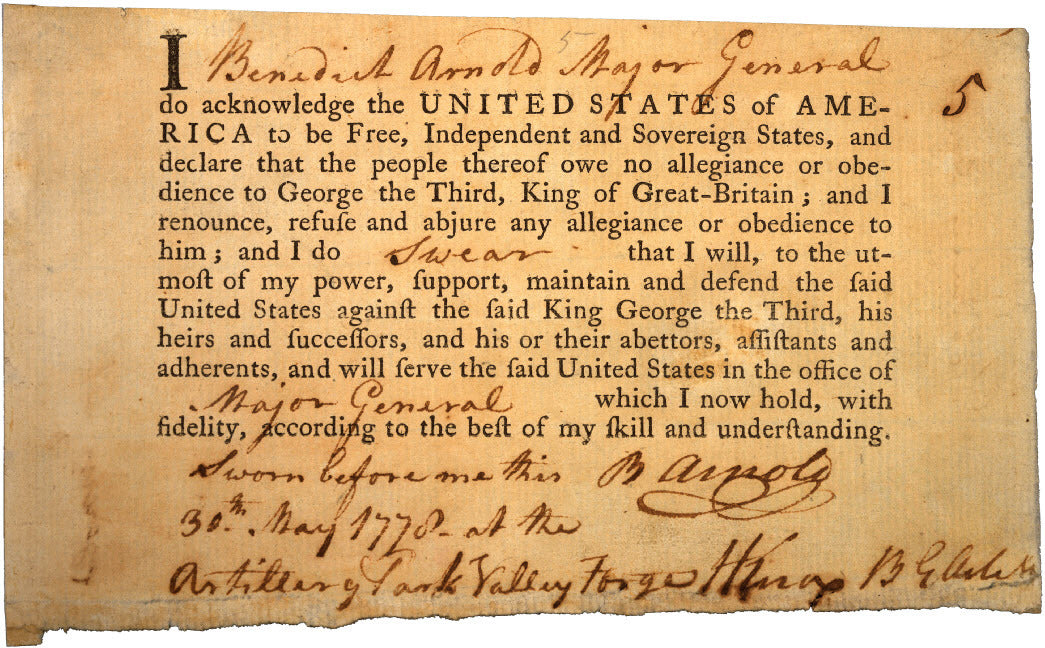 I Benedict Arnold Major General
5
do acknowledge the UNITED STATES of AME-
RICA to be Free, Independent and Sovereign States, and
declare that the people thereof owe no allegiance or obe-
dience to George the Third, King of Great-Britain; and I
renounce, refuſe and abjure any allegiance or obedience to
him; and I do Swear that I will, to the ut-
moſt of my power, ſupport, maintain and defend the ſaid
United States againſt the ſaid King George the Third, his
heirs and ſucceſſors, and his or their abettors, aſſiſtants and
adherents, and will ſerve the ſaid United States in the office of
Major General which I now hold, with
fidelity, according to the beſt of my ſkill and underſtanding.
Sworn before me this B Arnold
30th. May 1778 - at the
Artillery Park Valley Forge HKnox B G